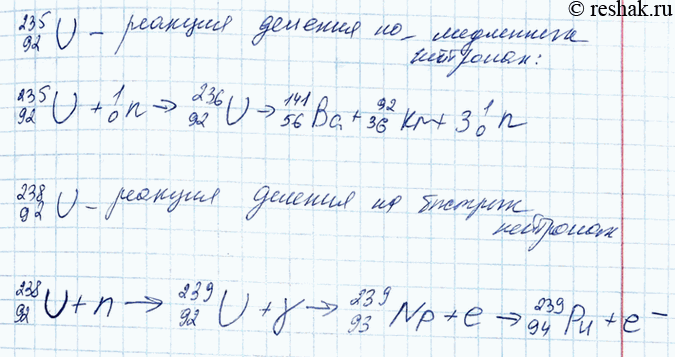 © reshak.ru
²³⁵₉₂U – реакция деления на медленных
нейтронах:
²³⁵₉₂U + ¹₀n → ²³⁶₉₂U → ¹⁴¹₅₆Ba + ⁹²₃₆Kr + 3¹₀n
²³⁸₉₂U – реакция деления на быстрых
нейтронах
²³⁸₉₂U + n → ²³⁹₉₂U + γ → ²³⁹₉₃Np + e → ²³⁹₉₄Pu + e⁻